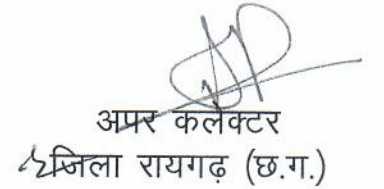 अपर कलेक्टर
जिला रायगढ़ (छ.ग.)